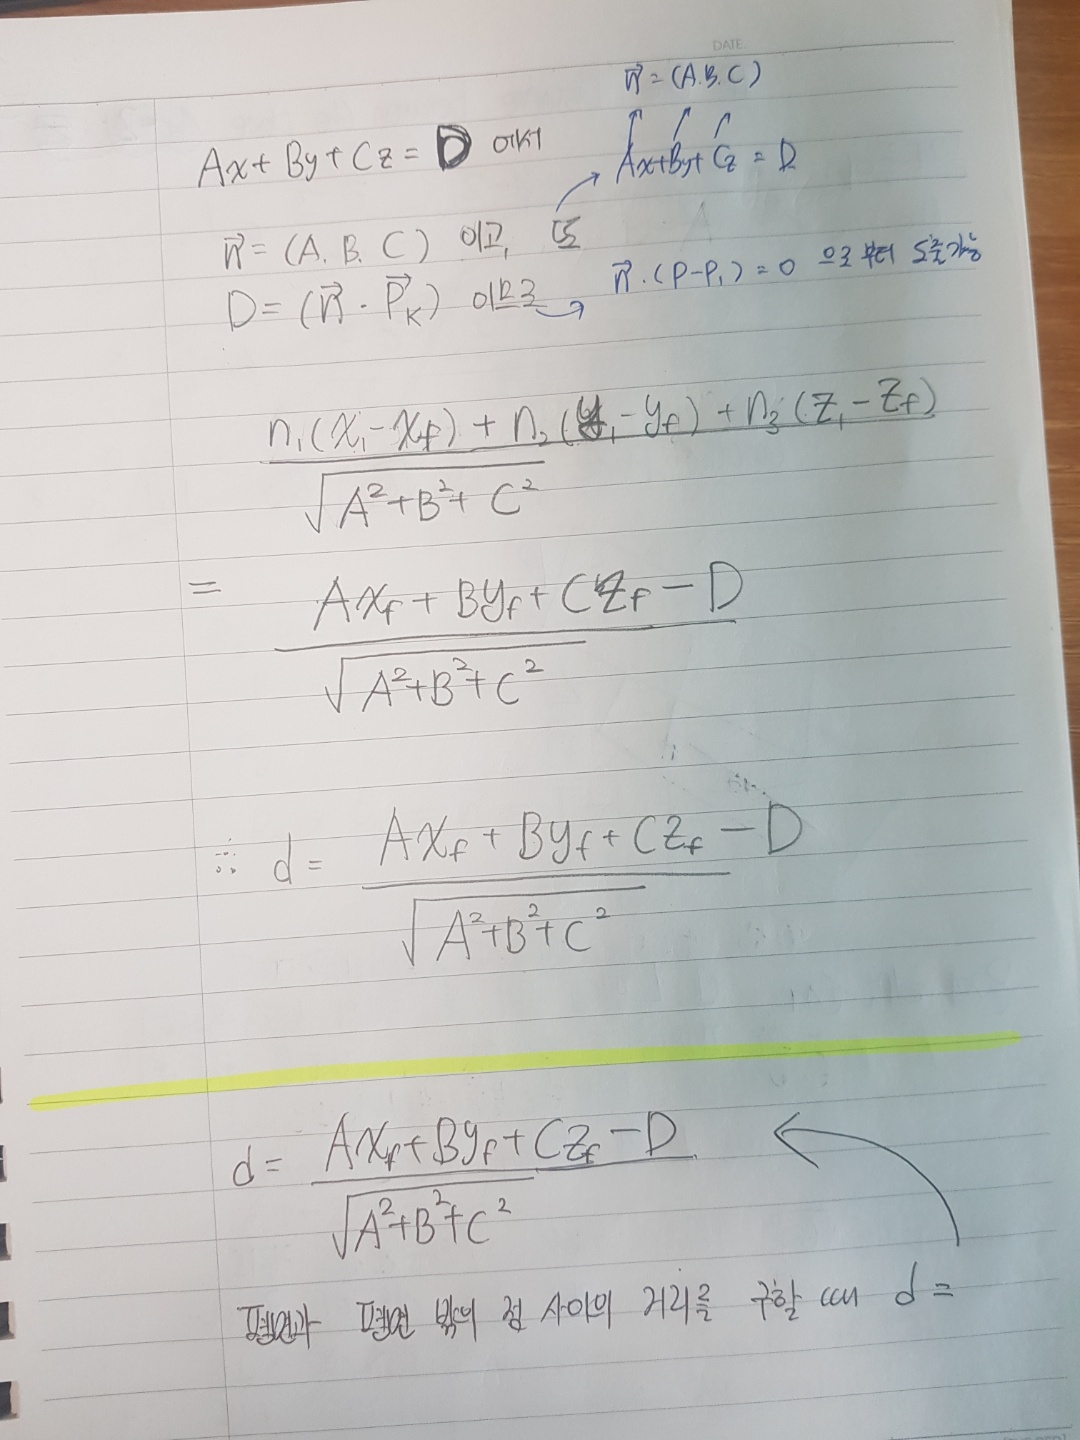 DATE.
n⃗ = (A.B.C)
Ax+By+Cz = D 에서
Ax+By+Cz = D
n⃗ = (A. B. C) 이고, 또
D = (n⃗ · P⃗ₖ) 이므로
n⃗·(P-P₁) = 0 으로부터 도출가능
n₁(x₁-x_f) + n₂(y₁-y_f) + n₃(z₁-z_f)
√A²+B²+C²
= Ax_f + By_f + Cz_f - D
√A²+B²+C²
∴ d = Ax_f + By_f + Cz_f - D
√A²+B²+C²
d = Ax_f+By_f+Cz_f-D
√A²+B²+C²
평면과 평면 밖의 점 사이의 거리를 구할 때 d =